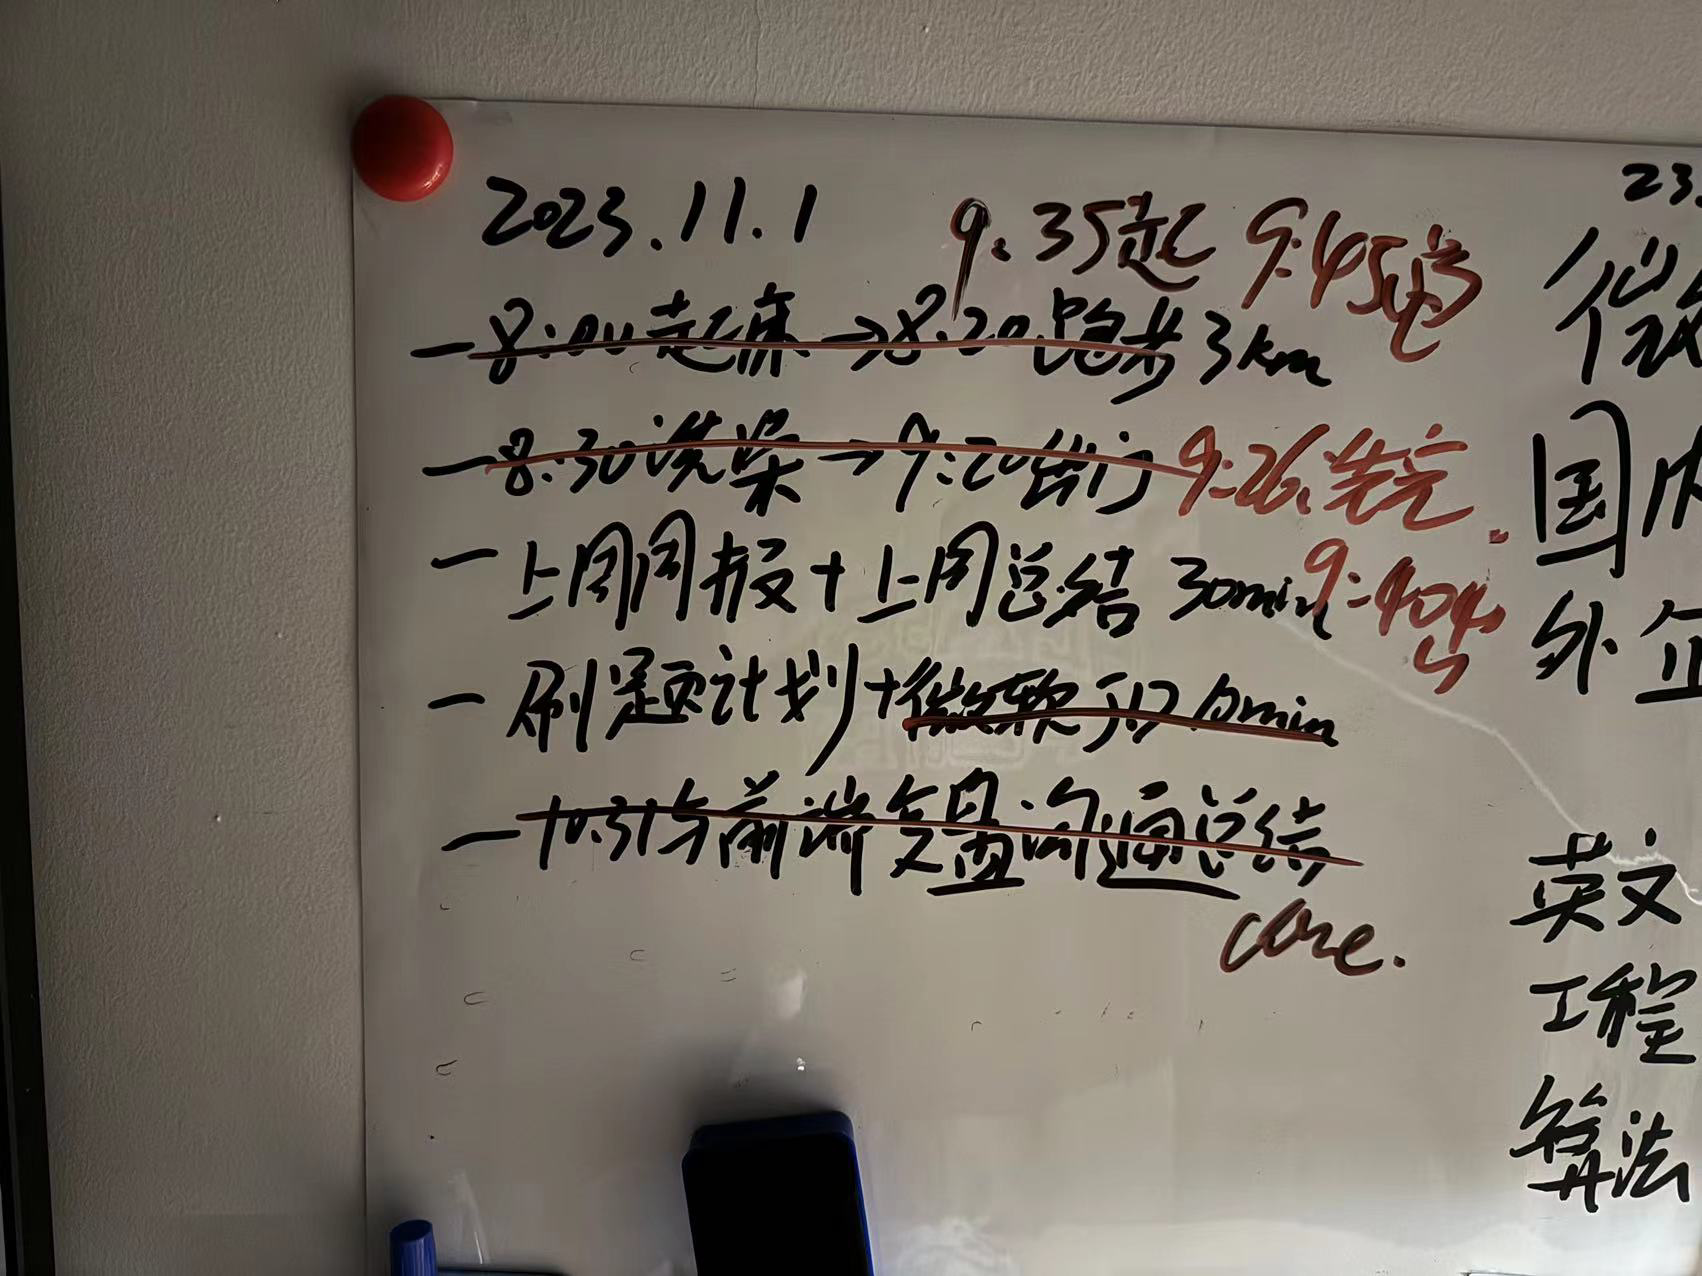 2023.11.1
9.35起 9:45
8:00起床→8:20跑步3km
8:30洗→9:20出门 9:26洗完.
上周周报+上周总结 30min 9:40
刷题计划+微软 min
10.31与前端 沟通总结
core.
23.
微
国内
外企
英文
工程
算法